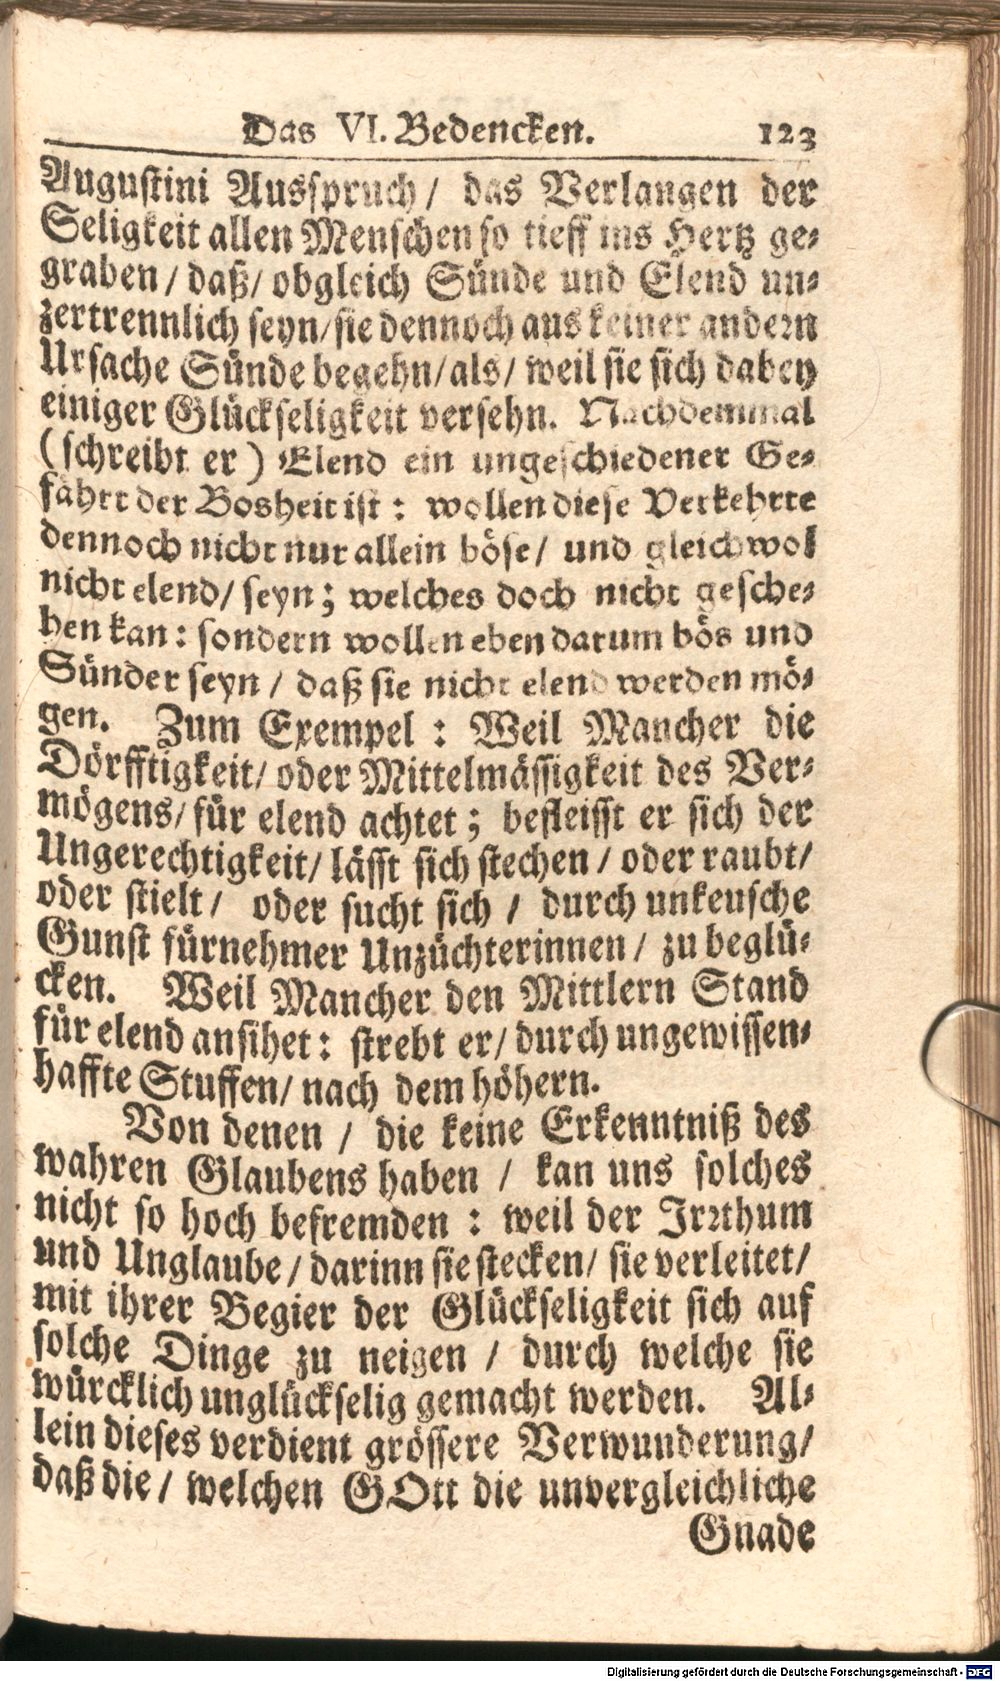 Das VI. Bedencken. 123
Augustini Ausspruch / das Verlangen der
Seligkeit allen Menschen so tieff ins Hertz ge-
graben / daß / obgleich Sünde und Elend un-
zertrennlich seyn / sie dennoch aus keiner andern
Ursache Sünde begehn / als / weil sie sich dabey
einiger Glückseligkeit versehn. Nachdemmal
( schreibt er ) Elend ein ungeschiedener Ge-
fährt der Bosheit ist : wollen diese Verkehrte
dennoch nicht nur allein böse / und gleichwol
nicht elend / seyn ; welches doch nicht gesche-
hen kan : sondern wollen eben darum bös und
Sünder seyn / daß sie nicht elend werden mö-
gen. Zum Exempel : Weil Mancher die
Dörfftigkeit / oder Mittelmässigkeit des Ver-
mögens / für elend achtet ; befleisst er sich der
Ungerechtigkeit / lässt sich stechen / oder raubt /
oder stielt / oder sucht sich / durch unkeusche
Gunst fürnehmer Unzüchterinnen / zu beglü-
cken. Weil Mancher den Mittlern Stand
für elend ansihet : strebt er / durch ungewissen-
haffte Stuffen / nach dem höhern.
Von denen / die keine Erkenntniß des
wahren Glaubens haben / kan uns solches
nicht so hoch befremden : weil der Irrthum
und Unglaube / darinn sie stecken / sie verleitet /
mit ihrer Begier der Glückseligkeit sich auf
solche Dinge zu neigen / durch welche sie
würcklich unglückselig gemacht werden. Al-
lein dieses verdient grössere Verwunderung /
daß die / welchen GOtt die unvergleichliche
Gnade
Digitalisierung gefördert durch die Deutsche Forschungsgemeinschaft - DFG